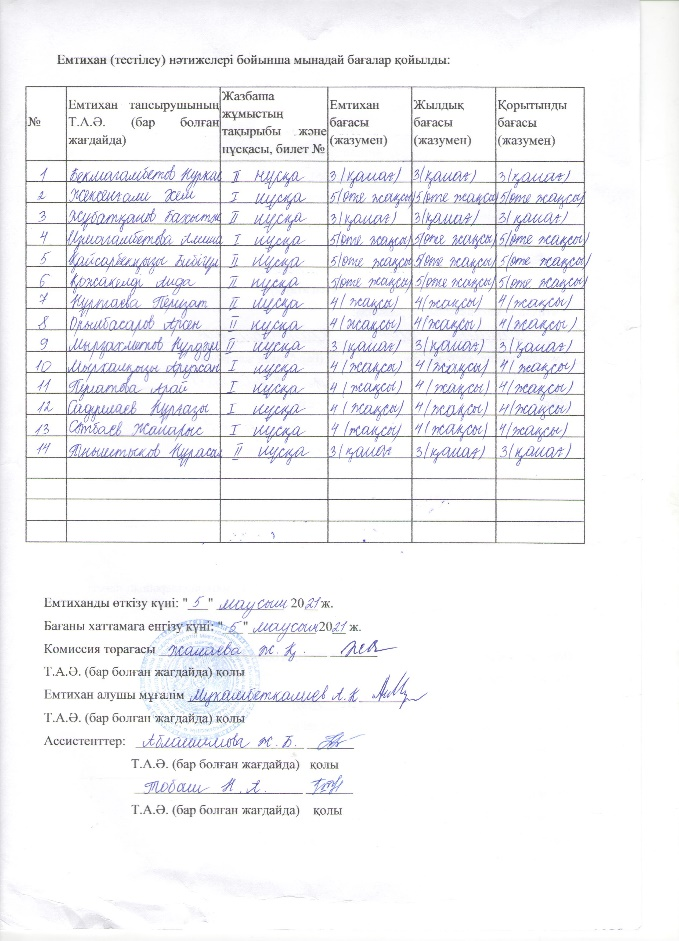 Емтихан (тестілеу) нәтижелері бойынша мынадай бағалар қойылды:
№ Емтихан тапсырушының Т.А.Ә. (бар болған жағдайда) Жазбаша жұмыстың тақырыбы және нұсқасы, билет № Емтихан бағасы (жазумен) Жылдық бағасы (жазумен) Қорытынды бағасы (жазумен)
1 Бекмагамбетов Нұрхан II нұсқа 3/(қанағ) 3(қанағ) 3(қанағ)
2 I нұсқа 5(өте жақсы) 5(өте жақсы) 5(өте жақсы)
3 II нұсқа 3(қанағ) 3(қанағ) 3(қанағ)
4 Измагамбетова Амина I нұсқа 5(өте жақсы) 5(өте жақсы) 5(өте жақсы)
5 Қайсарбекқызы Бибігүл II нұсқа 5(өте жақсы) 5(өте жақсы) 5(өте жақсы)
6 Қожакелді Аида II нұсқа 5(өте жақсы) 5(өте жақсы) 5(өте жақсы)
7 Нұрпаева Перизат II нұсқа 4(жақсы) 4(жақсы) 4(жақсы)
8 Орынбасаров Арсен II нұсқа 4(жақсы) 4(жақсы) 4(жақсы)
9 Мырзахметов II нұсқа 3(қанағ) 3(қанағ) 3(қанағ)
10 I нұсқа 4(жақсы) 4(жақсы) 4(жақсы)
11 Арай I нұсқа 4(жақсы) 4(жақсы) 4(жақсы)
12 I нұсқа 4(жақсы) 4(жақсы) 4(жақсы)
13 Сатбаев Жанарыс I нұсқа 4(жақсы) 4(жақсы) 4(жақсы)
14 Тныштықов II нұсқа 3(қанағ) 3(қанағ) 3(қанағ)
Емтиханды өткізу күні: "5" маусым 2021 ж.
Бағаны хаттамаға енгізу күні: "5" маусым 2021 ж.
Комиссия торағасы Жанаева Ж. Қ.
Т.А.Ә. (бар болған жағдайда) қолы
Емтихан алушы мұғалім Мұхамбеткалиев А.К
Т.А.Ә. (бар болған жағдайда) қолы
Ассистенттер: Ж. Б.
Т.А.Ә. (бар болған жағдайда) қолы
Тобаш Н. А.
Т.А.Ә. (бар болған жағдайда) қолы